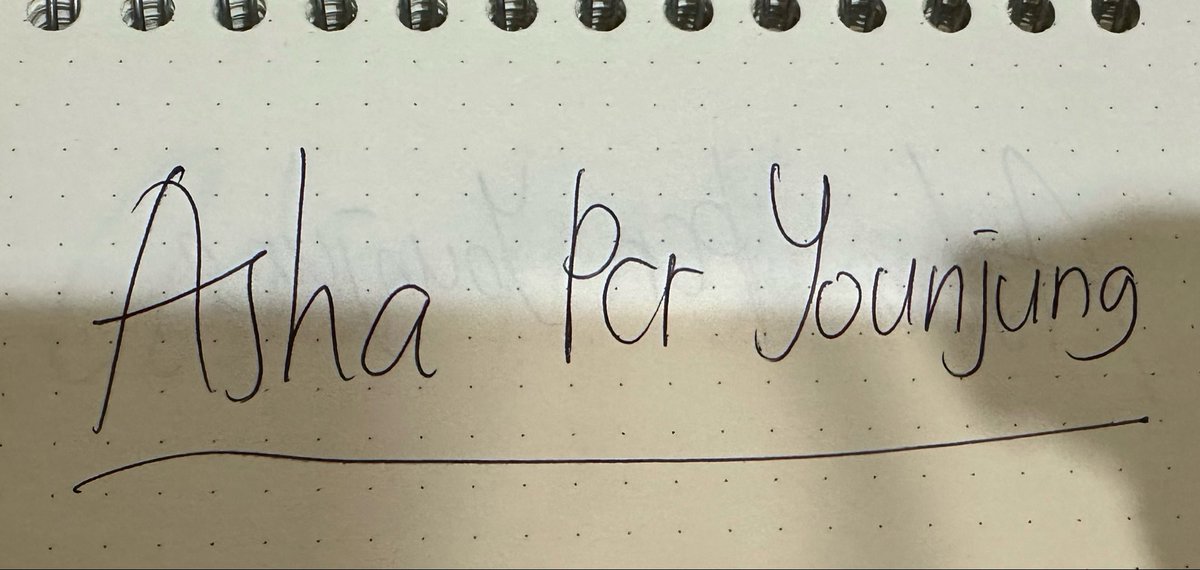 Asha Pcr Younjung